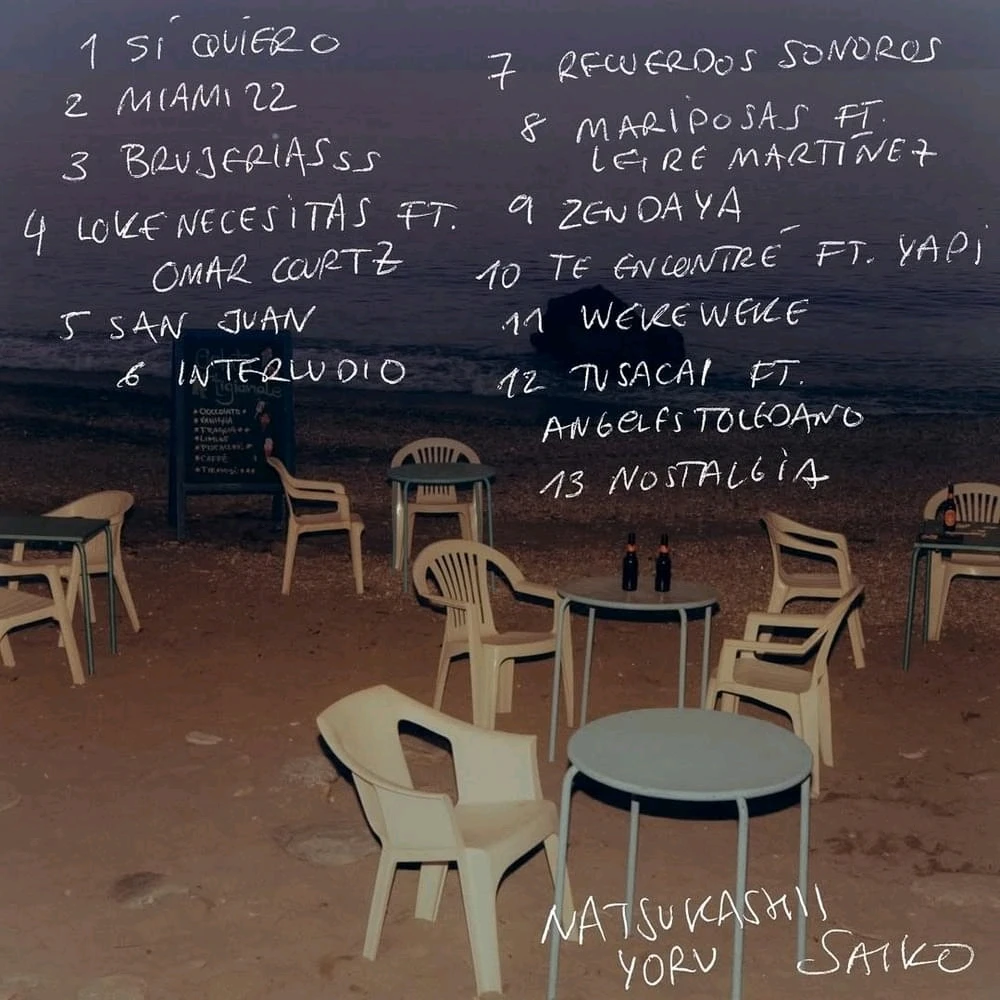 1 SÍ QUIERO
2 MIAMI 22
3 BRUJERIASSS
4 LOKENECESITAS FT.
OMAR COURTZ
5 SAN JUAN
6 INTERLUDIO
7 RECUERDOS SONOROS
8 MARIPOSAS FT.
LEIRE MARTÍNEZ
9 ZENDAYA
10 TE ENCONTRÉ FT. YAPI
11 WEKEWEKE
12 TUSACAI FT.
ANGELES TOLEDANO
13 NOSTALGIA
*CIOCCOLATO*
*VANIGLIA
*LIMONE
*CAFFÈ
NATSUKASHII
YORU SAIKO